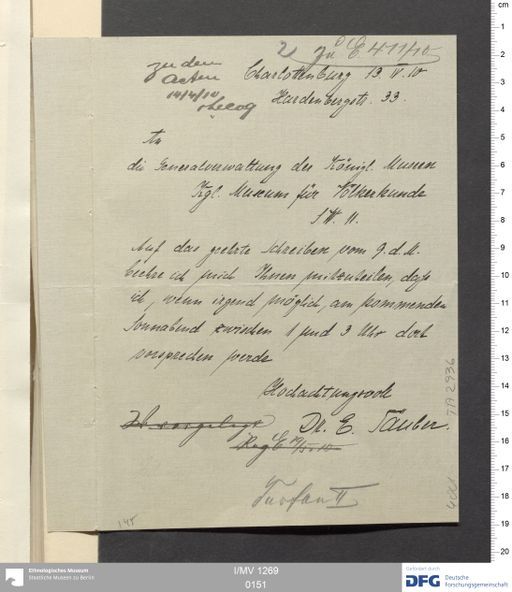 2 zu E 411/10
zu den
Acten
14/4/10
Charlottenburg 13 IV. 10
Hardenbergstr. 33.
An
die Generalverwaltung der Königl. Museen
Kgl. Museum für Völkerkunde
SW. 11.
Auf das geehrte Schreiben vom 9. d. M.
beehre ich mich Ihnen mitzuteilen, daß
ich, wenn irgend möglich, am kommenden
Sonnabend zwischen 1 und 3 Uhr dort
vorsprechen werde
Hochachtungsvoll
Dr. E. Täuber.
vorgelegt
Turfan II
145
TA 2936
cm
1
2
3
4
5
6
7
8
9
10
11
12
13
14
15
16
17
18
19
20
Ethnologisches Museum
Staatliche Museen zu Berlin
I/MV 1269
0151
Gefördert durch
DFG Deutsche
Forschungsgemeinschaft